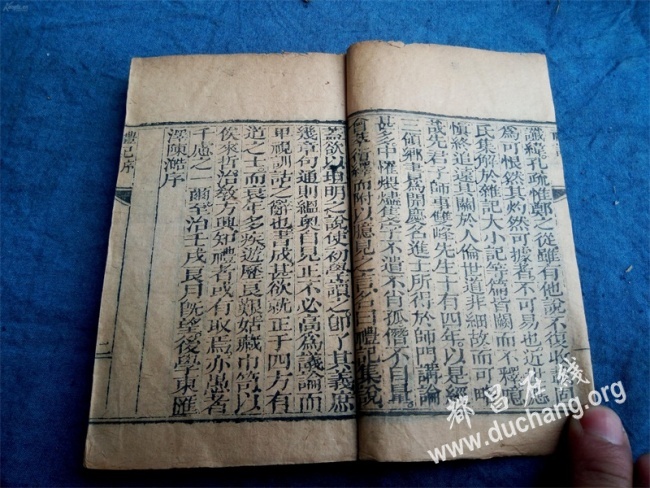 讖緯孔疏惟鄭之從雖有他說不復收載固
為可恨然其灼然可據者不可易也近世應
氏集解於雜記大小記等篇皆闕而不釋噫
慎終追遠其關於人倫世道非細故而可略
哉先君子師事雙峰先生十有四年以是經
三領鄉書為開慶名進士所得於師門講論
甚多中罹煨燼隻字不遺不肖孤僭不自量
而附以臆見之言名曰禮記集說
蓋欲以坦明之說使初學讀之即了其義庶
幾章句通則縕奧自見正不必高為議論而
卑視訓詁之辭也書成甚欲就正于四方有
道之士而衰年多疾遊歷良艱姑藏巾笥以
俟來折治教方興知禮者或有取焉亦愚者
千慮之一爾至治壬戌良月既望後學東匯
澤陳澔序
禮記序
二
都昌在线
www.duchang.org